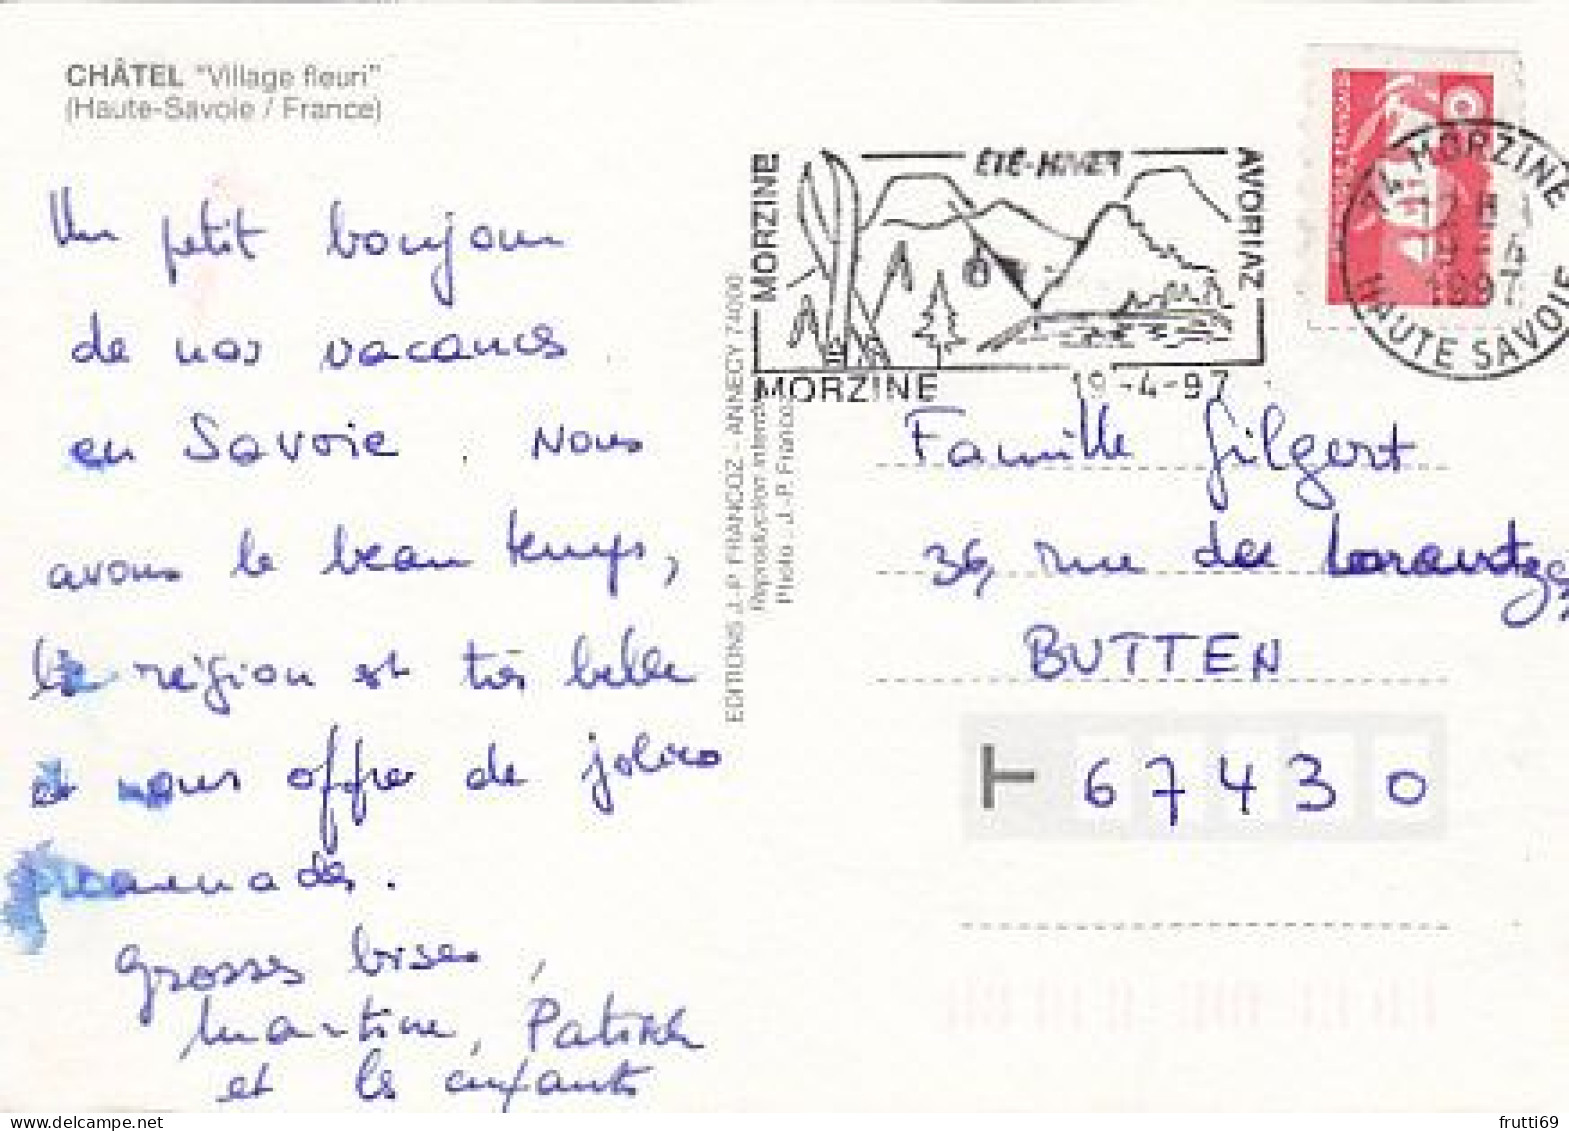 CHÂTEL "Village fleuri"
(Haute-Savoie / France)
Un petit bonjour
de nos vacances
en Savoie. Nous
avons le beau temps,
la région est très belle
et nous offre de jolies
promenades.
Grosses bises,
Martine, Patrick
et les enfants
EDITIONS J.-P. FRANCOZ - ANNECY 74000
Reproduction interdite
Photo : J.-P. Francoz
MORZINE
ÉTÉ-HIVER
AVORIAZ
MORZINE
19-4-97
74 MORZINE
1997
HAUTE SAVOIE
Famille Gilgert
36, rue des
BUTTEN
67430
frutti69
www.delcampe.net